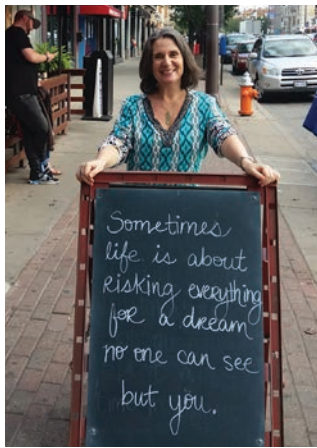 Sometimes
life is about
risking everything
for a dream
no one can see
but you.